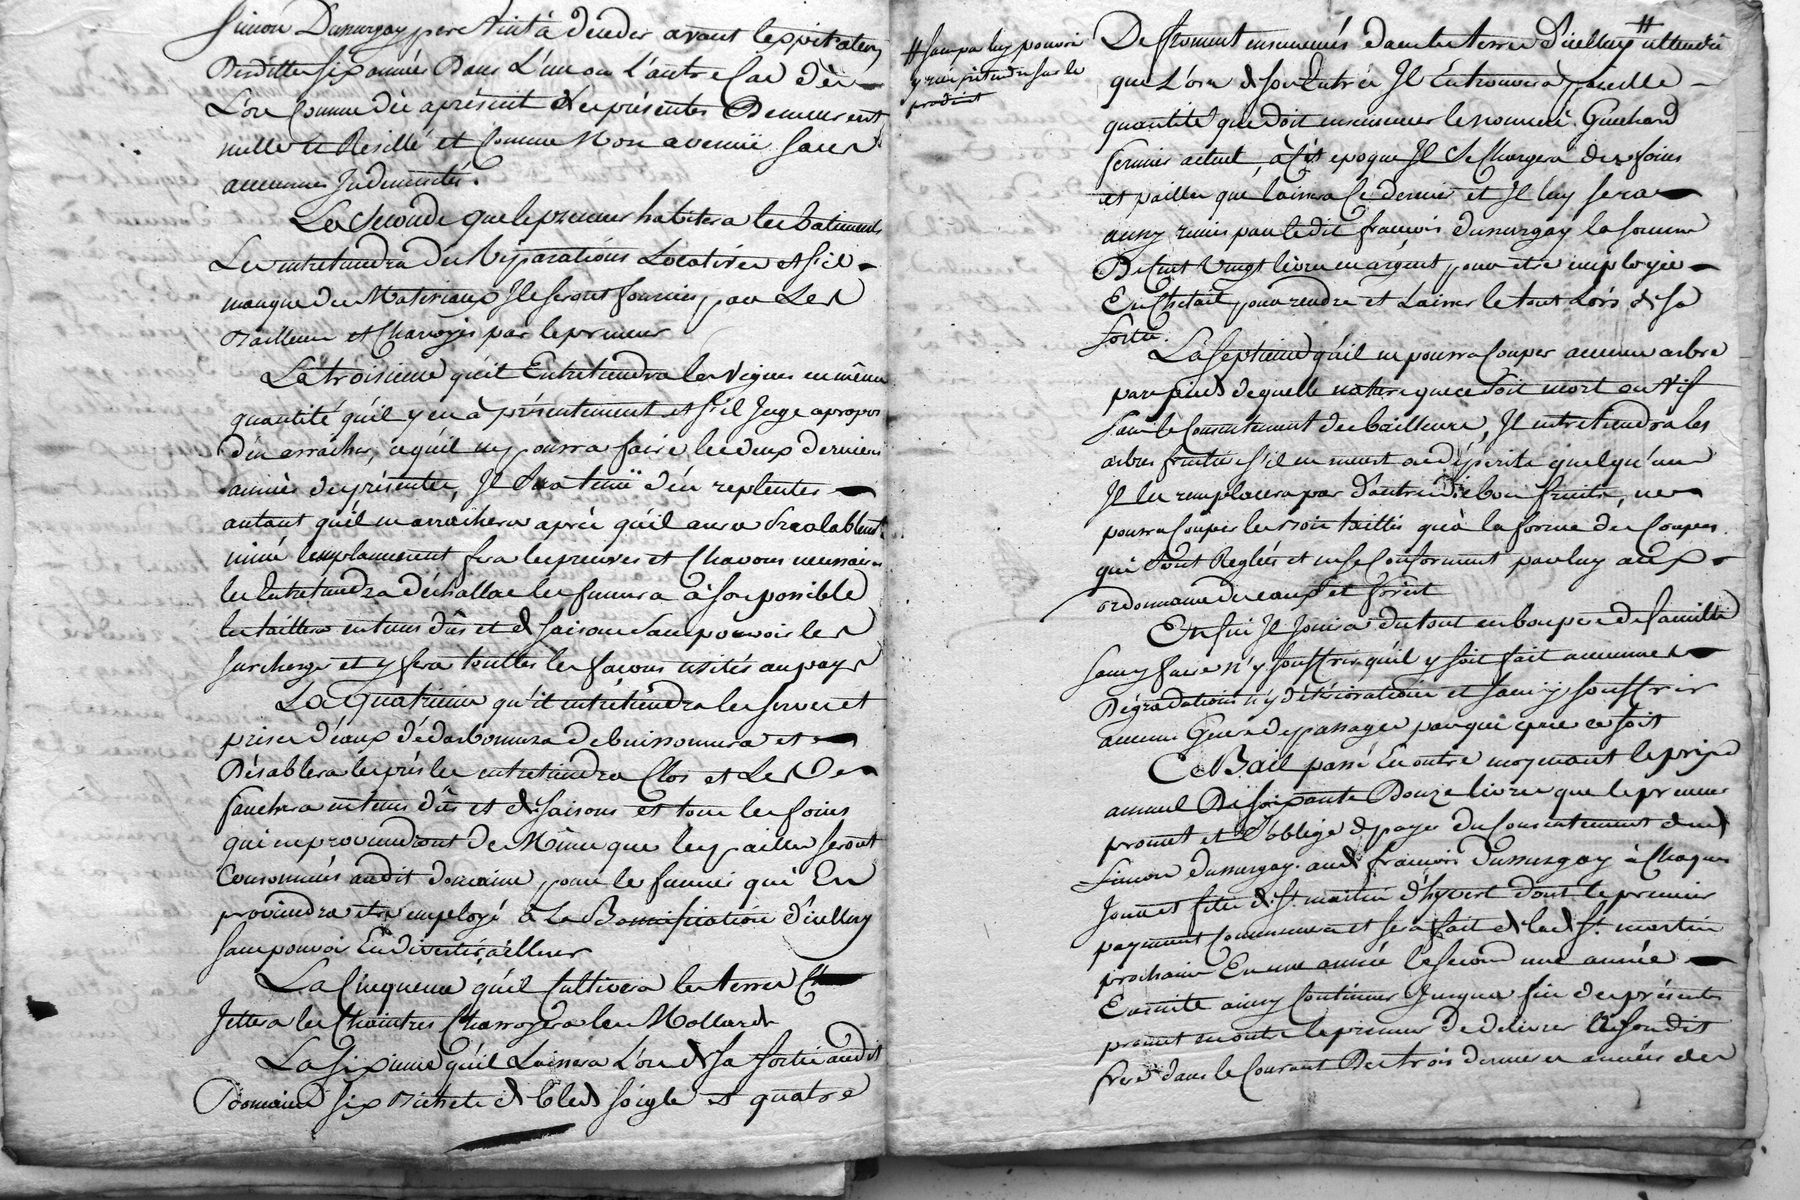 Simon Dumurgay pere Vint à déceder avant lexpiration
Desdittes six années Dans L'un ou L'autre Cas dès
L'ors Comme dès aprésent les présentes Demeureront
nulle et Resillé et Comme Non avenuë sans
aucunes Indemnités.
La Seconde que le preneur habitera les batiments
Les entretiendra des Réparations Locatives et s'il
manque des Materiaux Ils seront fournis par Les
Bailleurs et Charroyés par le preneur
La troisieme qu'il Entretiendra les Vignes en même
quantité qu'il y en a présentement et s'il Juge apropos
d'en arracher, ce qu'il ne pourra faire les deux dernieres
années des présentes, Il sera tenu d'en replenter
autant qu'il en arrachera après qu'il aura préalablement
miné l'emplacement fera les preuves et Chavons necessaires
les Entretiendra d'échallas les fumera à son possible
les taillera en tems dûs et de saison sans pouvoir les
surcharger et y fera toutes les façons usités au pays
La quatrieme qu'il entretiendra les serves et
prises d'eaux dédarbonnera debuissonnera et
Désablera les prés les entretiendra Clos et Les
fauchera en tems dûs et de saisons et tous les foins
qui en proviendront de Même que les pailles seront
Consommés audit domaine pour le fumier qui En
proviendra être employé à La Bonnification d'icelluy
sans pouvoir En divertir ailleurs
La Cinquieme qu'il Cultivera les terres
Jettera les Chaintres Charroyera les Mollards
La Sixieme qu'il Laissera L'ors de sa sortie audit
Domaine six Bichets de bled soigle et quatre
# sans pa luy pouvoir
y rien prétendre sur le
produit
De froment ensemencés dans les terres d'icelluy # attendu
que L'ors de son Entrée Il En trouvera pareille
quantité que doit ensemencer le nommé Guichard
fermier actuel, à cet epoque Il Se Chargera des foins
et pailles que laissera Ce dernier et Il luy sera
aussy remis par ledit françois Dumurgay la somme
De Cent Vingt livres en argent pour etre employée
En Chetail pour rendre et Laisser le tout Lors de sa
sortie.
La Septieme qu'il ne pourra Couper aucuns arbre
par pied de quelle nature que ce soit mort ou Vif
sans le Consentement des bailleurs, Il entretiendra les
arbres fruitiers s'il en meurt ou déperite quelqu'un
Il les remplacera par d'autres de bon fruits, ne
pourra Couper les bois taillis qu'à la forme des Coupes
qui sont Reglées et en se Conformant par luy aux
ordonnance des eaux et forêt
Enfin Il Jouira du tout en bon pere de famille
sans y faire n'y souffrir qu'il y soit fait aucunes
Dégradations n'y déteriorations et sans y souffrir
aucune Guere de passages par qui que ce soit
Ce Bail passé En outre moyennant le prix
annuel De soixante Douze livres que le preneur
promet et s'oblige de payer du Consentement dud
Simon Dumurgay aud françois Dumurgay à Chaque
Jour et fête de st martin d'hyvert dont le premier
payement Commencera et sera fait de lad St. martin
prochaine En une année le second une année
Ensuite ainsy Continuer Jusqu'a fin des présentes
promet en outre le preneur De delivrer à son dit
frere dans le Courant Des trois dernieres années des